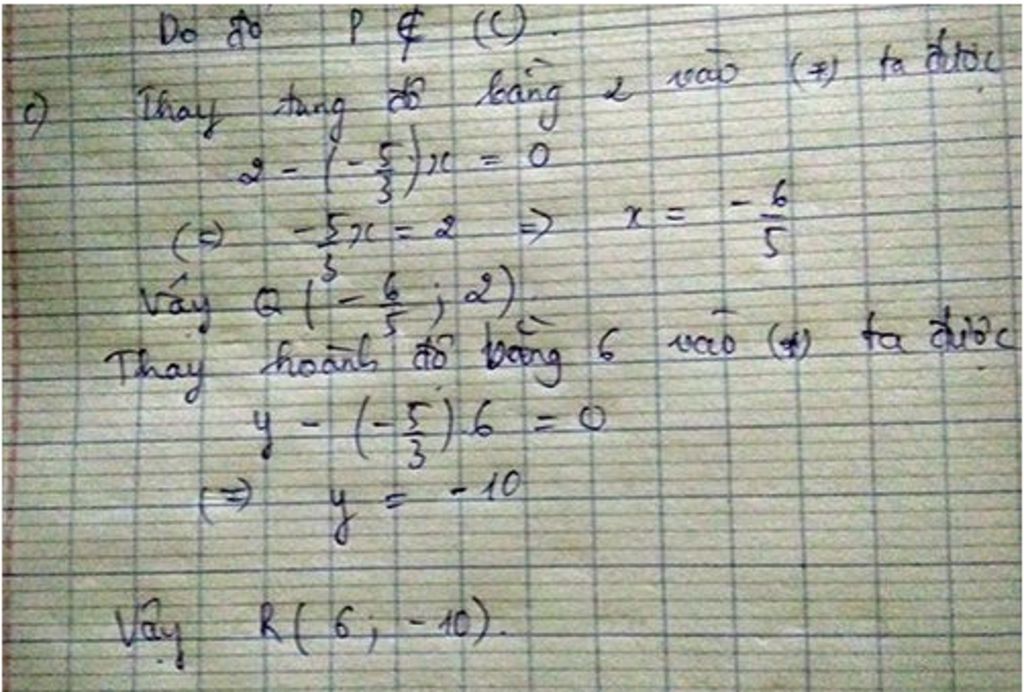 Do đó P ∉ (C).
c) Thay tung độ bằng 2 vào (*) ta được
2 - (-5/3)x = 0
(=) -5/3 x = 2 => x = -6/5
Vậy Q(-6/5; 2).
Thay hoành độ bằng 6 vào (*) ta được
y - (-5/3).6 = 0
(=) y = -10
Vậy R(6; -10).